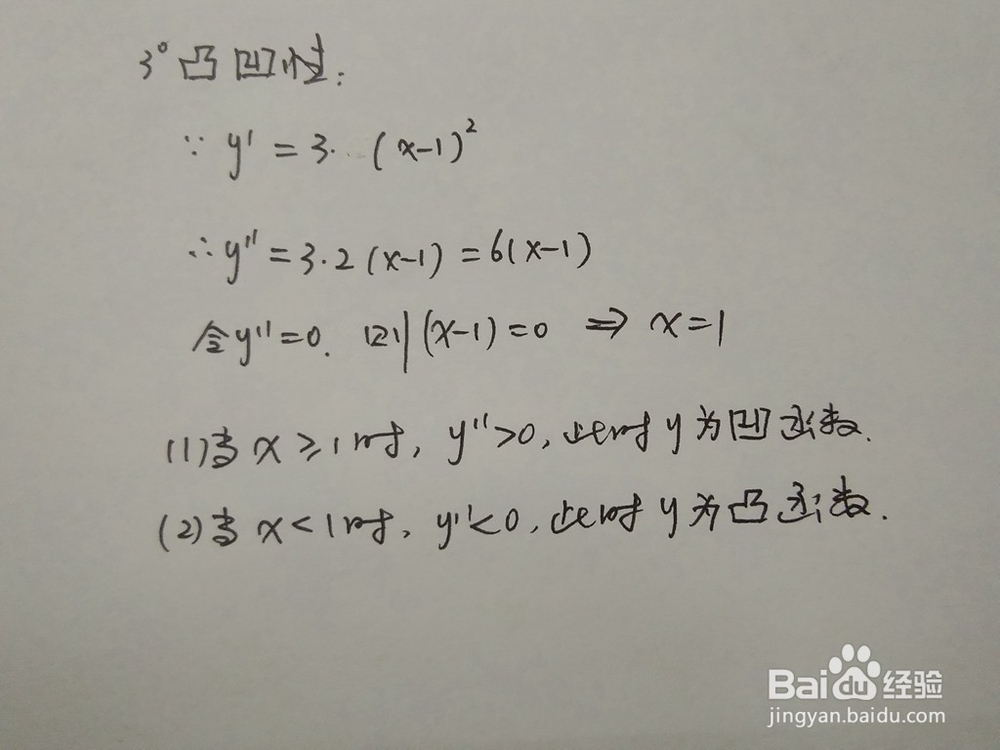 3° 凸凹性:
∵ y' = 3· (x-1)²
∴ y'' = 3·2(x-1) = 6(x-1)
令y''=0. 则(x-1)=0 ⇒ x=1
(1)当 x ≥ 1时, y''>0, 此时 y 为凹函数.
(2)当 x < 1时, y''<0, 此时 y 为凸函数.
Baidu 经验
jingyan.baidu.com